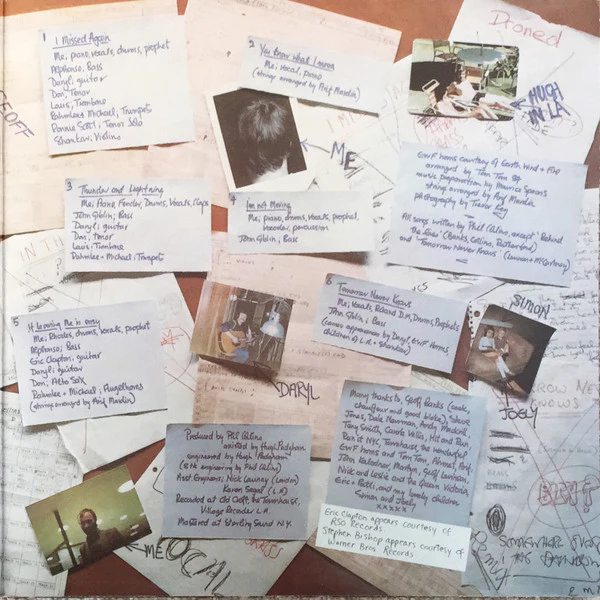 1 I Missed Again
Me; piano, vocals, drums, prophet
Alphonso; Bass
Daryl; guitar
Don; Tenor
Louis; Trombone
Rahmlee + Michael; Trumpets
Ronnie Scott; Tenor Solo
Shankar; Violins
2 You Know What I Mean
Me; Vocal, piano
(strings arranged by Arif Mardin)
Droned
HUGH
IN LA
GEOFF
ME
EWF horns courtesy of Earth Wind + Fire
arranged by Tom Tom 84
music preparation by Maurice Spears
strings arranged by Arif Mardin
photography by Trevor Key
All songs written by Phil Collins, except 'Behind
the Lines' (Banks, Collins, Rutherford)
and 'Tomorrow Never Knows' (Lennon-McCartney)
3 Thunder and Lightning
Me; Piano, Fender, Drums, Vocals,
John Giblin; Bass
Daryl; guitar
Don; tenor
Louis; Trombone
Rahmlee + Michael; Trumpets
4 I'm not Moving
Me; piano, drums, vocals, prophet,
vocoder, percussion
John Giblin; Bass
IN TH
5 If Leaving Me is easy
Me; Rhodes, drums, vocals, prophet
Alphonso; Bass
Eric Clapton; guitar
Daryl; guitar
Don; Alto Sax
Rahmlee + Michael; Flugelhorns
(strings arranged by Arif Mardin)
6 Tomorrow Never Knows
Me; Vocals, Roland D.M, Drums, Prophets
John Giblin; Bass
(cameo appearances by Daryl, EWF Horns,
children of L.A. + Shankar)
SIMON
JOELY
DARYL
ROW NE
KNOWS
Produced by Phil Collins
assisted by Hugh Padgham
engineered by Hugh Padgham
(8 tk engineering by Phil Collins)
Asst. Engineers; Nick Launay (London)
Karen Siegel (L.A)
Recorded at Old Croft, the Townhouse,
Village Recorder L.A.
Mastered at Sterling Sound N.Y.
Many thanks to, Geoff Banks (cook,
chauffeur and good bloke), Steve
Jones, Dale Newman, Andy Mackrill,
Tony Smith, Carole Willis, Hit and Run,
Run it NYC, Townhouse, the wonderful
EWF horns and Tom Tom, Ahmet, Arif,
John Kalodner, Martyn, Geoff
Nick and Leslie and the Queen Victoria,
Eric + Patti, and my lovely children
Simon and Joely
xxxxx
Eric Clapton appears courtesy of
RSO Records
Stephen Bishop appears courtesy of
Warner Bros Records
ME
SOMEWHERE OVER